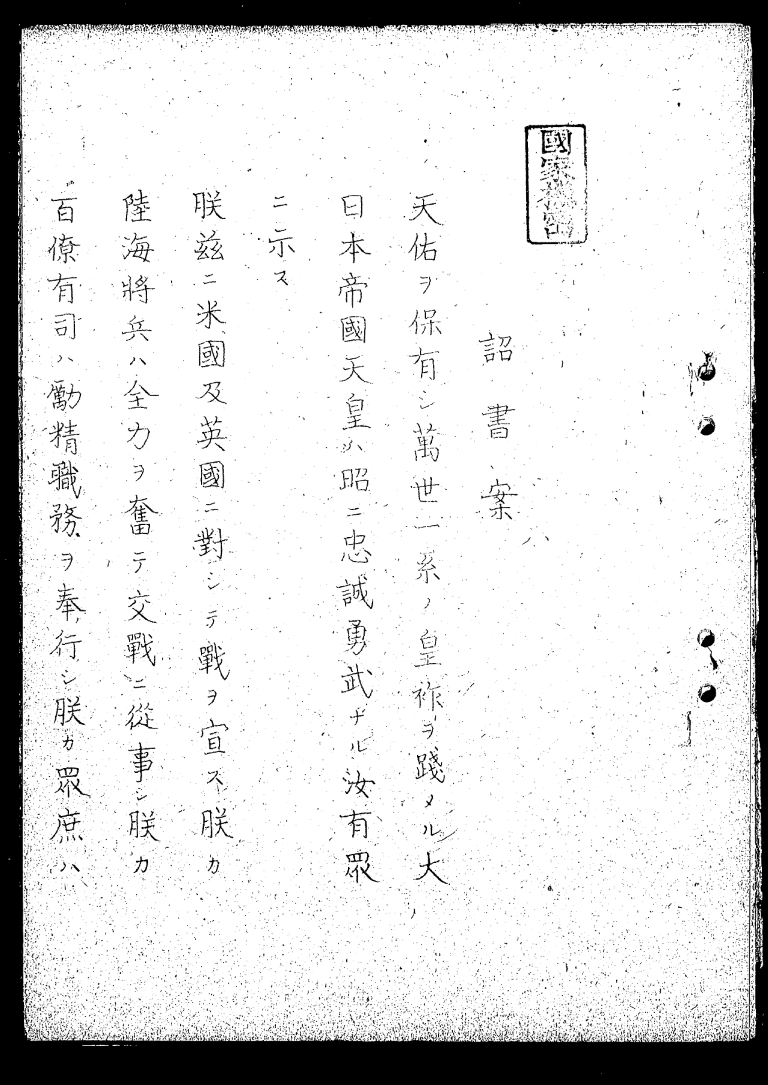 國家機密
詔書案
天佑ヲ保有シ萬世一系ノ皇祚ヲ踐メル大
日本帝國天皇ハ昭ニ忠誠勇武ナル汝有眾
ニ示ス
朕茲ニ米國及英國ニ對シテ戰ヲ宣ス朕カ
陸海將兵ハ全力ヲ奮テ交戰ニ從事シ朕カ
百僚有司ハ勵精職務ヲ奉行シ朕カ眾庶ハ